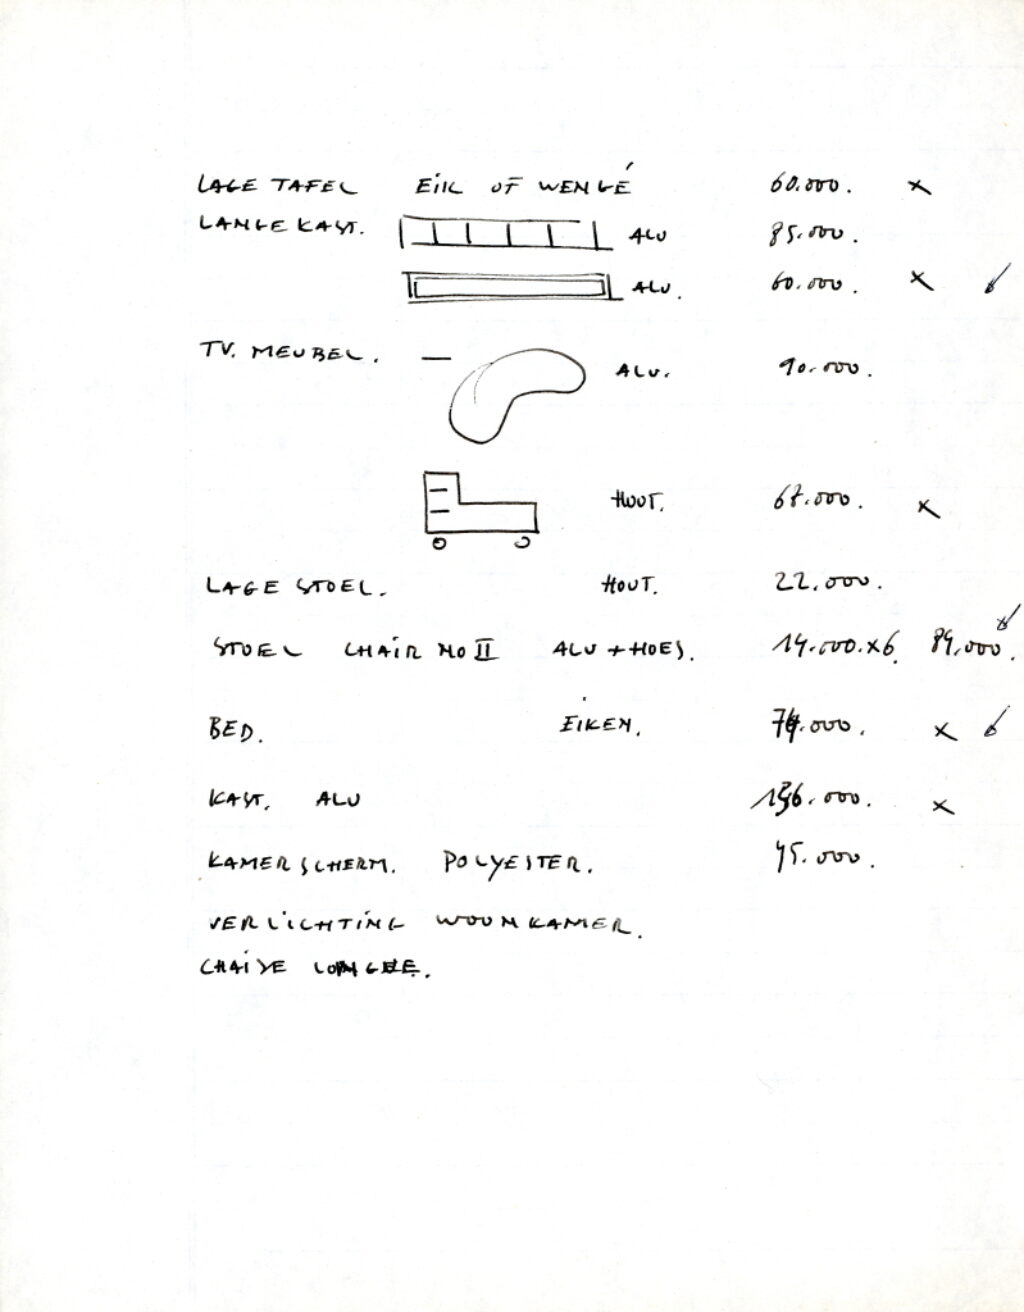 LAGE TAFEL EIK OF WENGÉ 60.000. x
LANGE KAST. ALU 85.000.
ALU. 60.000. x
TV. MEUBEL. — ALU. 90.000.
HOUT. 68.000. x
LAGE STOEL. HOUT. 22.000.
STOEL CHAIR NO II ALU + HOES. 14.000.x6. 84.000.
BED. EIKEN. .000. x
KAST. ALU .000. x
KAMERSCHERM. POLYESTER. 45.000.
VERLICHTING WOONKAMER.
CHAISE LONGUE.